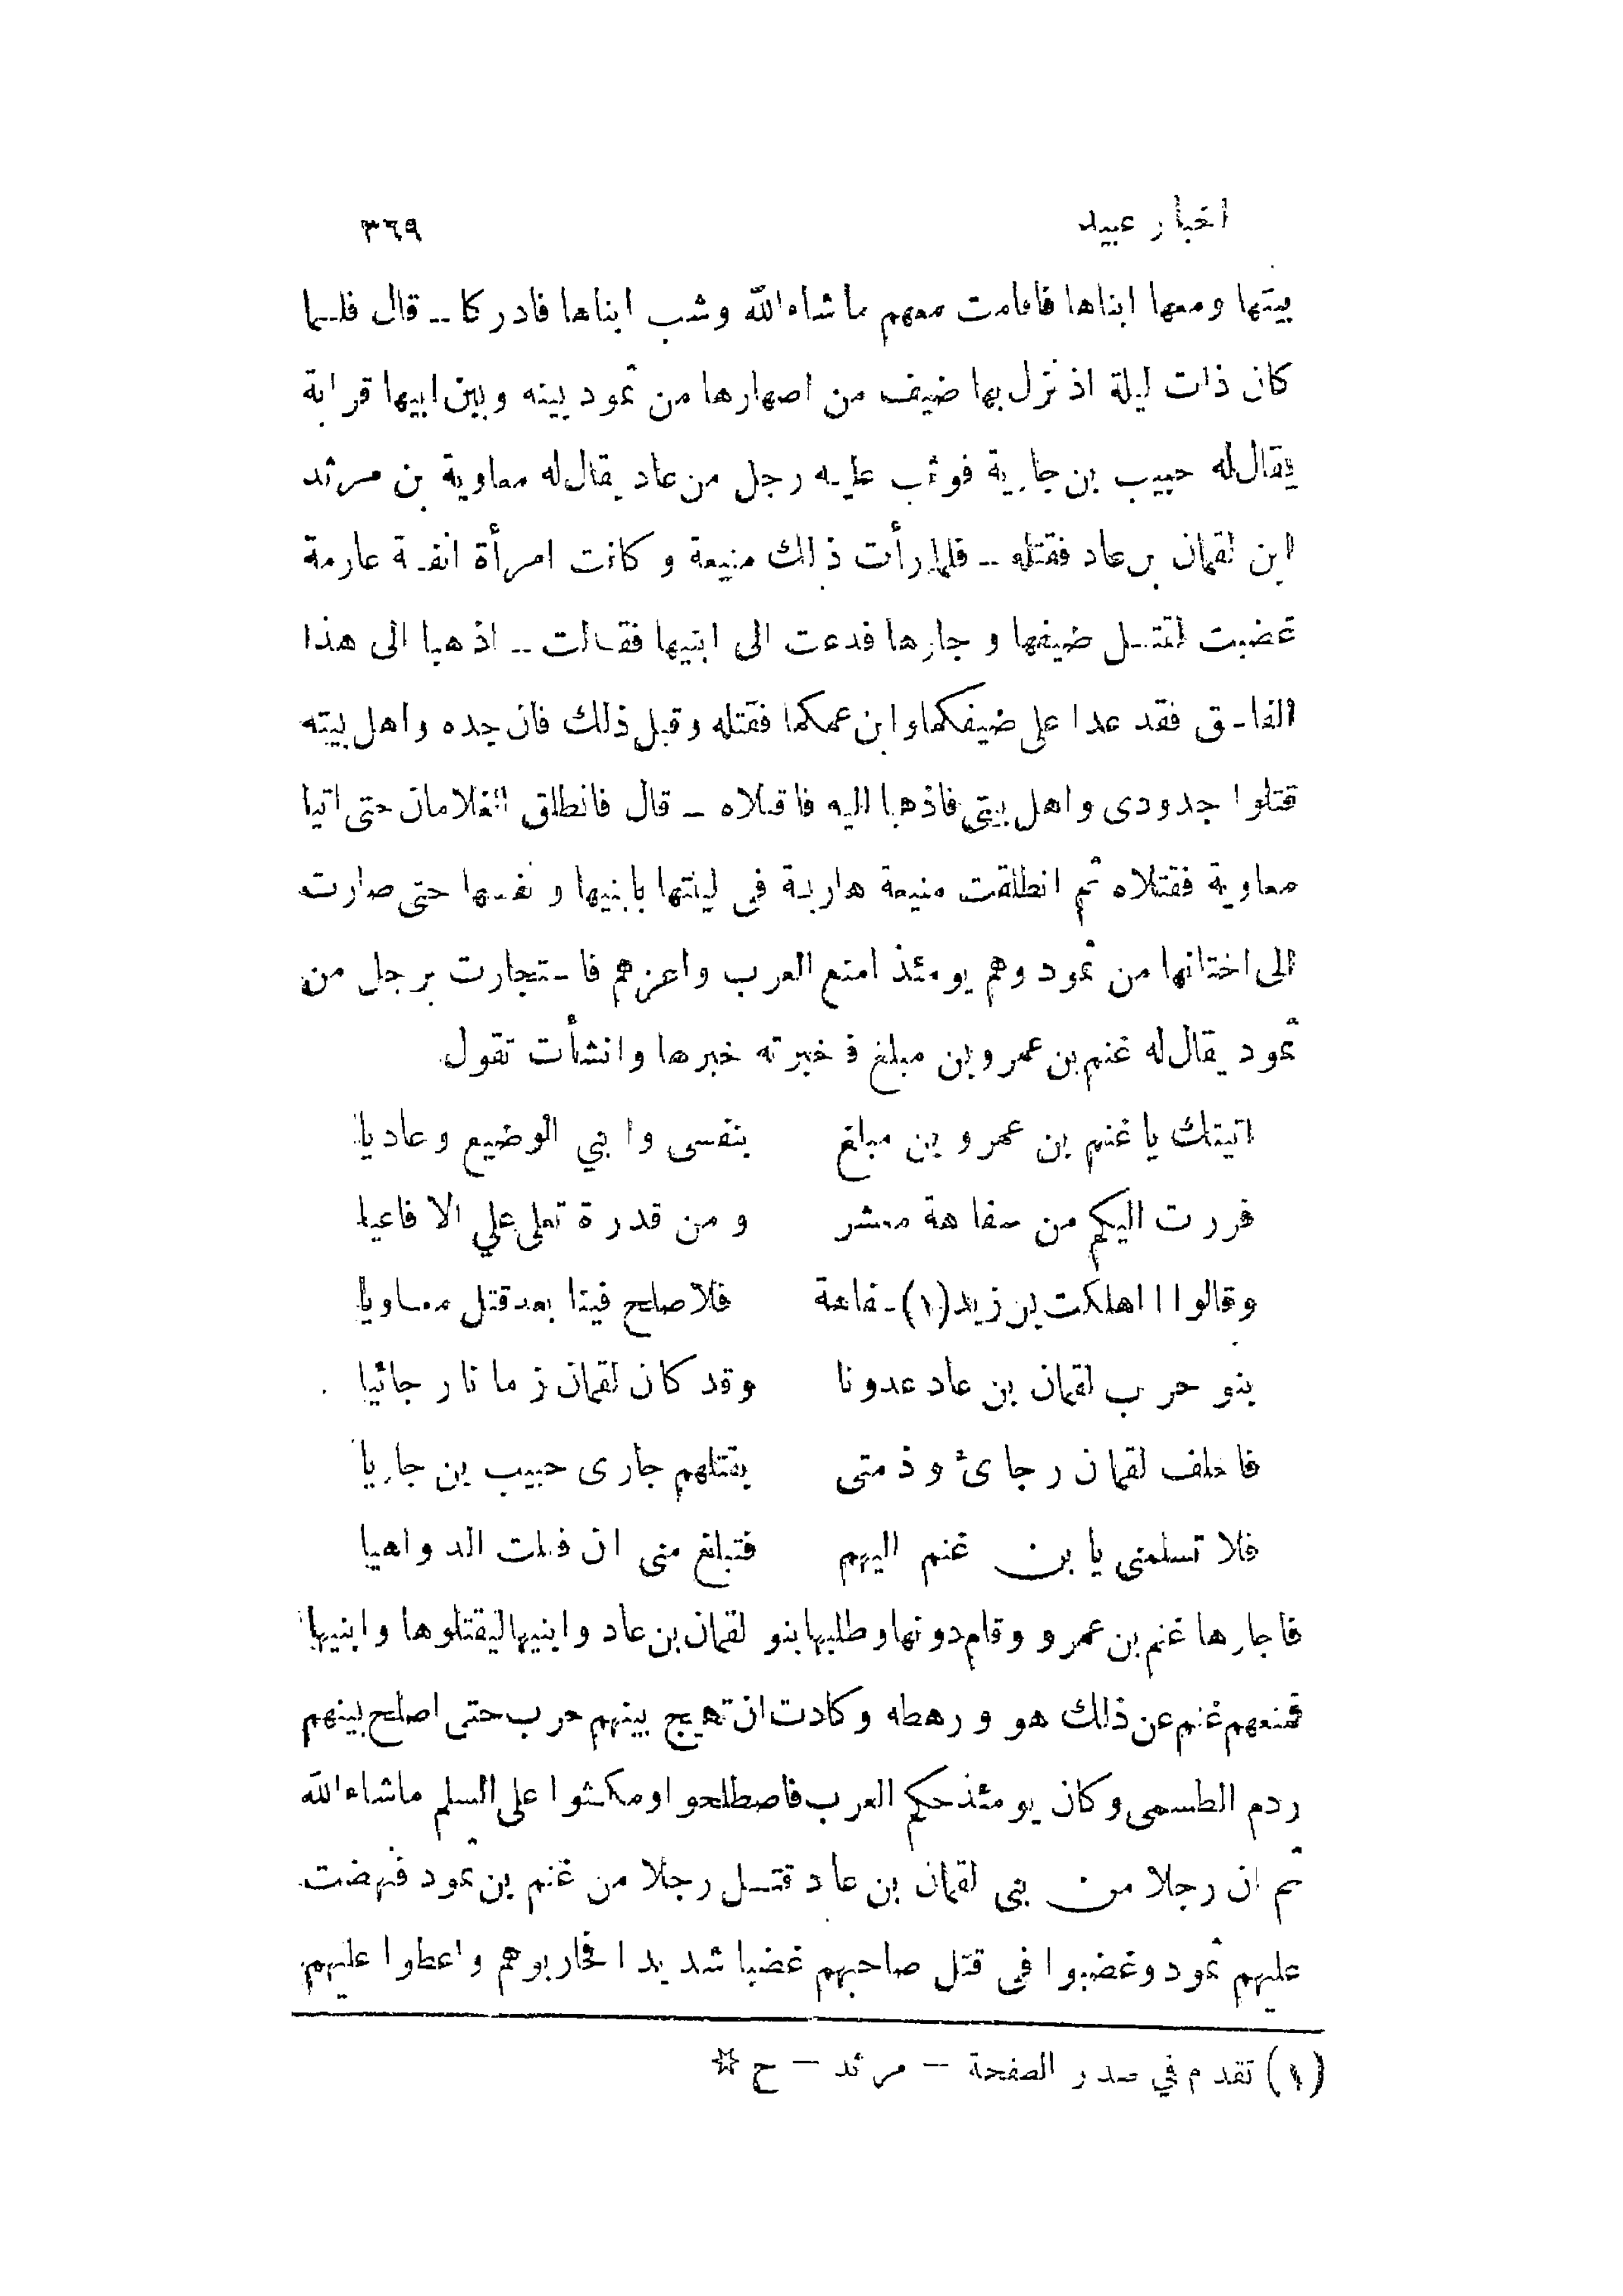 اخبار عبيد ٣٦٩
بيتها ومعها ابناها فاقامت معهم ماشاء الله وشب ابناها فادركا ــ قال فلما
كان ذات ليلة اذ نزل بها ضيف من اصهارها من ثمود بينه وبين ابيها قرابة
يقال له حبيب بن جارية فوثب عليه رجل من عاد يقال له معاوية بن مرثد
ابن لقمان بن عاد فقتله ــ فلما رأت ذلك منيعة وكانت امرأة انفة عارمة
غضبت لقتل ضيفها وجارها فدعت الى ابنيها فقالت ــ اذهبا الى هذا
الفاسق فقد عدا على ضيفكما وابن عمكما فقتله وقبل ذلك فان جده واهل بيته
قتلوا جدودى واهل بيتى فاذهبا اليه فاقتلاه ــ قال فانطلق الغلامان حتى اتيا
معاوية فقتلاه ثم انطلقت منيعة هاربة فى ليلتها بابنيها ونفسها حتى صارت
الى اختانها من ثمود وهم يومئذ امنع العرب واعزهم فاستجارت برجل من
ثمود يقال له غنم بن عمرو بن مبلغ فخبرته خبرها وانشأت تقول
اتيتك يا غنم بن عمرو بن مبلغ بنفسى وابني الوضيع وعاديا
فررت اليكم من سفاهة معشر ومن قدرة تعلى علي الافاعيا
وقالوا اهلكت بن زيد (١) سفاهة فلا صلح فينا بعد قتل معاويا
بنو حرب لقمان بن عاد عدونا وقد كان لقمان زمانا رجائيا
فاخلف لقمان رجائ وذمتى بقتلهم جارى حبيب بن جاريا
فلا تسلمنى يا بن غنم اليهم فتبلغ منى ان فعلت الدواهيا
فاجارها غنم بن عمرو وقام دونها وطلبها بنو لقمان بن عاد وابنيها ليقتلوها وابنيها
فمنعهم غنم عن ذلك هو ورهطه وكادت ان تهيج بينهم حرب حتى اصلح بينهم
ردم الطسمى وكان يومئذ حكم العرب فاصطلحوا ومكثوا على السلم ماشاء الله
ثم ان رجلا من بنى لقمان بن عاد قتل رجلا من غنم بن ثمود فنهضت
عليهم ثمود وغضبوا فى قتل صاحبهم غضبا شديدا فحاربوهم واعطوا عليهم
(١) تقدم في صدر الصفحة – مرثد – ح ☆